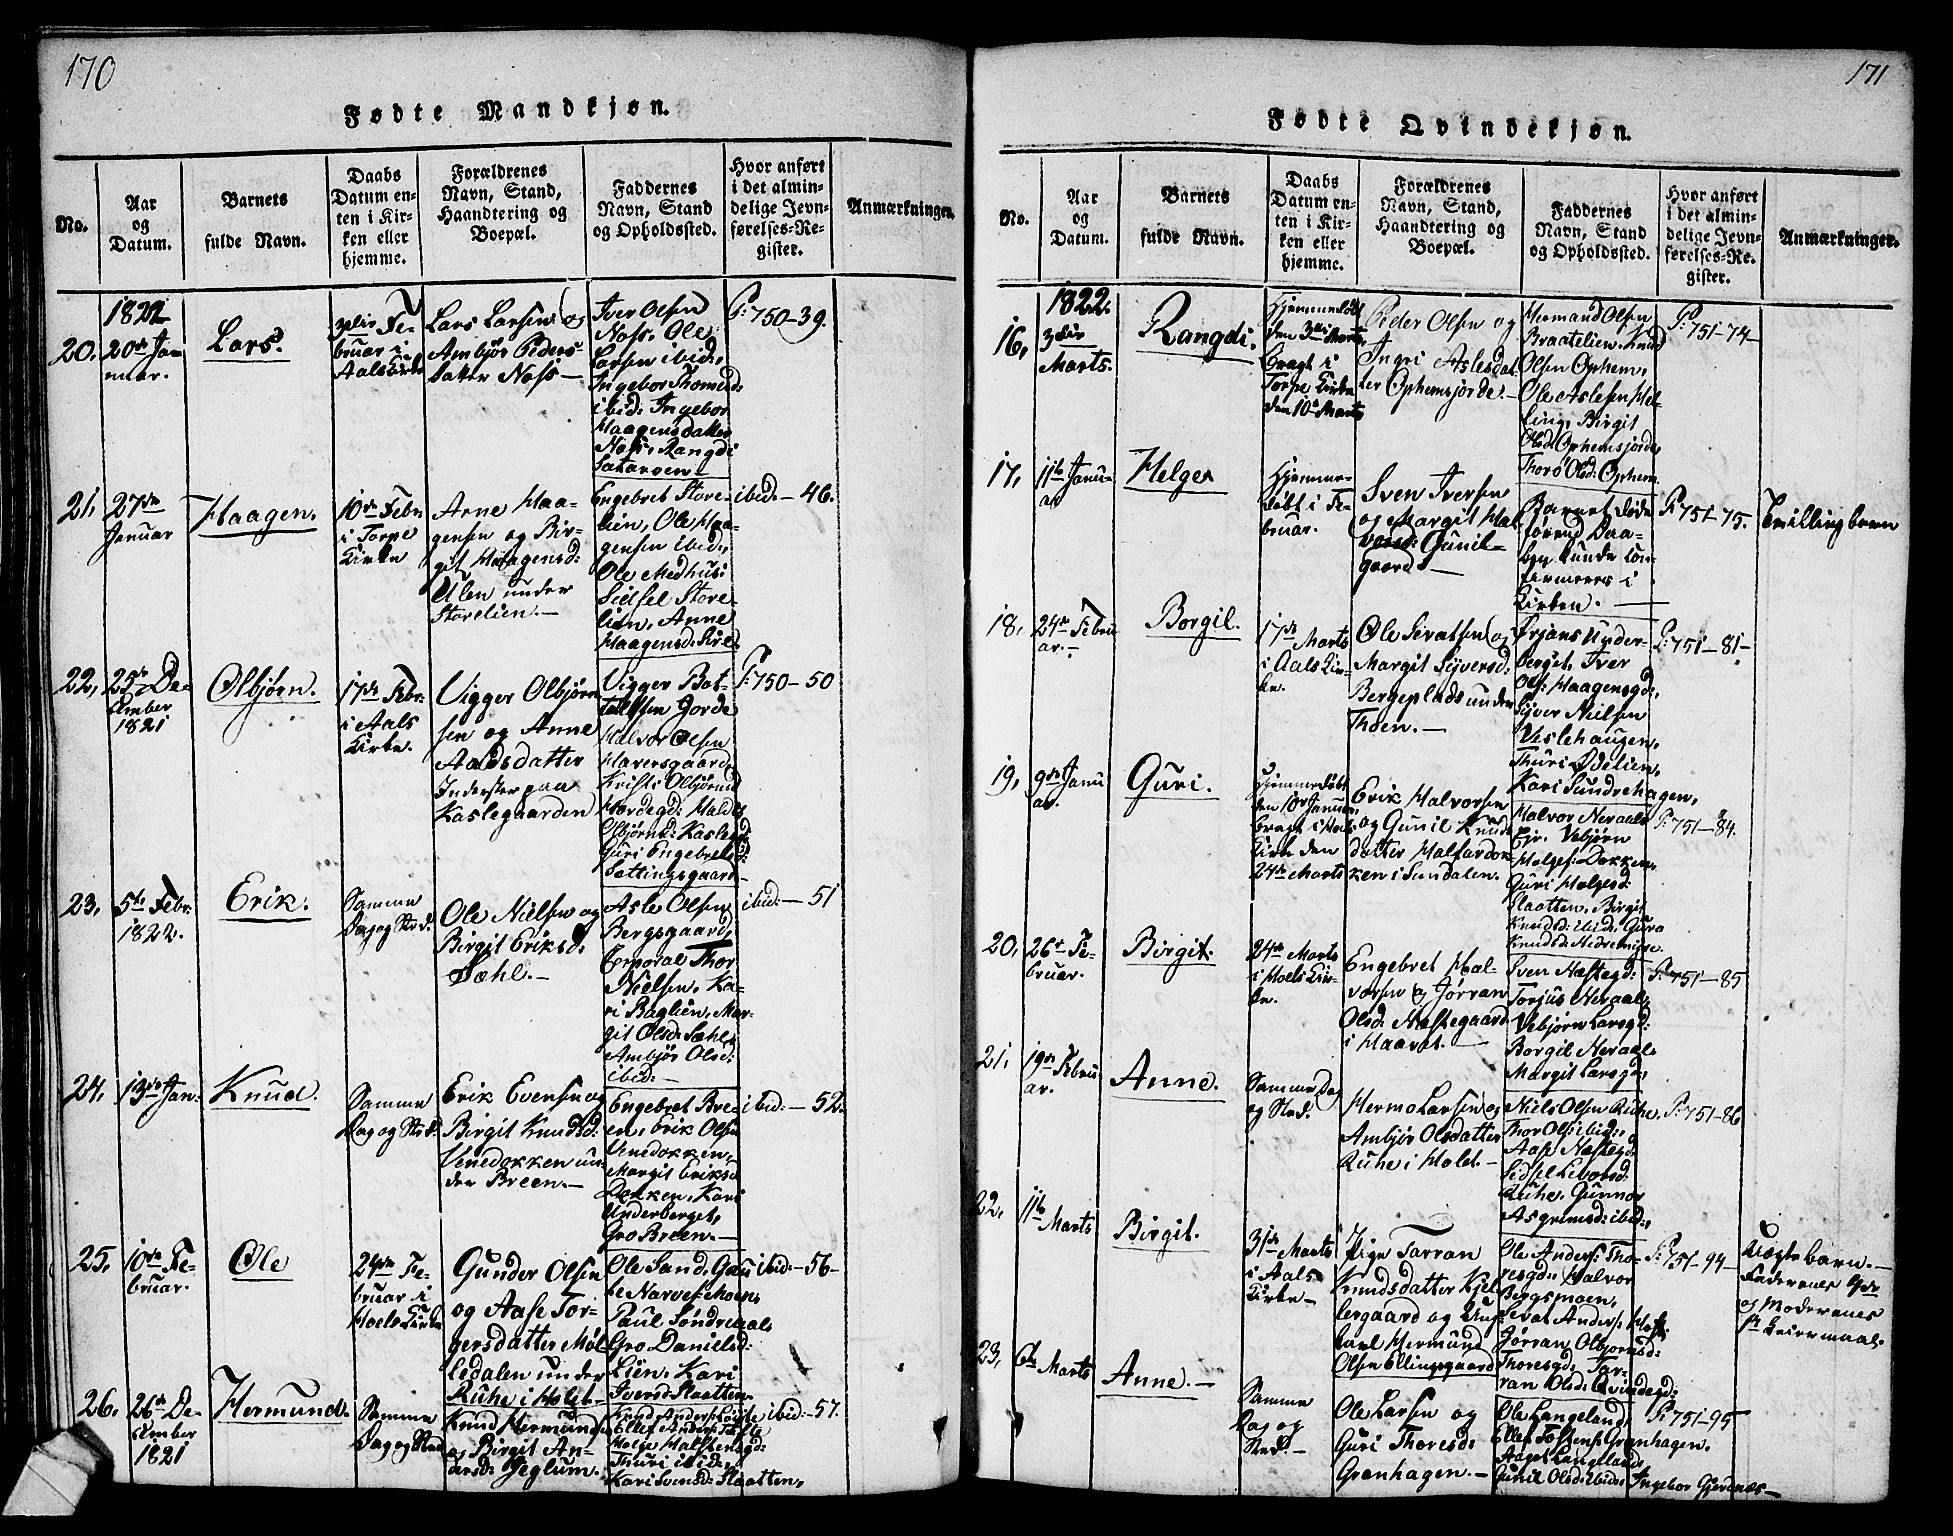 170
Fødte Mandkjøn.
No.
Aar
og
Datum.
Barnets
fulde Navn.
Daabs
Datum en-
ten i Kir-
ken eller
hjemme.
Forældrenes
Navn, Stand,
Haandtering og
Boepæl.
Faddernes
Navn, Stand
og Opholdssted.
Hvor anført
i det almin-
delige Jevn-
førelses-Re-
gister.
Anmærkninger.
1822
20.
20de Ja-
nuar.
Lars.
3die Fe-
bruar i
Aals Kirke
Lars Larsen og
Ambjør Peders-
datter Noss –
Iver Olsen
Noss, Ole
Larsen ibid:,
Ingebor Thomesd:
ibid: Ingebor
Haagensdatter
Noss, Rangdi
Sataroen –
P: 750–39.
21,
27de
Januar
Haagen.
10de Febr
i Torpe
Kirke
Arne Haa-
gensen og Bir-
git Haagensd:
Ulen under
Storelien. –
Engebret Store-
lien, Ole Haa-
gensen ibid:,
Ole Medhus:
Sidsel Store-
lien, Anne
Haagensd:
ibid: – 46.
22,
25de De-
cember
1821
Olbjørn.
17de Febr
i Aals
Kirke.
Vigger Olbjørn-
sen og Anne
Aaldsdatter
Inderster paa
Kaslegaarden
Vigger Bot-
tolfsen Gorde
Halvor Olsen
Haversgaard,
Kristi Olbjørnsd
P: 750–50
Guri Engebretsd:
Sattingsgaard –
23,
5te Febr.
1822.
Erik.
Samme
Dag og Sted.
Ole Nielsen og
Birgit Eriksd.
Sæhl. –
Asle Olsen
Bergsgaard,
Corporal Thor
Nielsen, Ka-
ri Baglien, Mar-
git Olsd: Sæhl,
Ambjør Olsd:
ibid: –
ibid: – 51
24,
13de Jan:
Knud.
Samme
Dag og Sted.
Erik Evensen og
Birgit Knudsd:
Venedokken un-
der Breen. –
Engebret Bre-
en, Erik Olsen
Venedokken,
Margit Eriksd
Dokken, Kari
Underberget,
Gro Breen. –
ibid: – 52.
25,
10de Fe-
bruar.
Ole
24de Fe-
bruar i
Hoels Kirke
Gunder Olsen
og Aase Tor-
gersdatter Møl-
ledalen under
Ruhe i Holet –
Ole Sand, Gau-
te Narves: Moen,
Paul Søndreaal,
Gro Danielsd:
Lien, Kari
Iversd: Slaatten.
ibid: – 56 –
26.
26de De-
cember
1821
Hermund.
Samme
Dag og Sted
Knud Hermunds:
og Birgit An-
dersd: Jeglum.
Thuri ibid:
Kari Svensd: Slaatten,
ibid: – 57.
171
Fødte Qvindekjøn.
No.
Aar
og
Datum.
Barnets
fulde Navn.
Daabs
Datum en-
ten i Kir-
ken eller
hjemme.
Forældrenes
Navn, Stand,
Haandtering og
Boepæl.
Faddernes
Navn, Stand
og Opholdssted.
Hvor anført
i det almin-
delige Jevn-
førelses-Re-
gister.
Anmærkninger.
1822.
16,
3die
Marts.
Rangdi.
Hjemmedøbt
den 3die Marts,
bragt i
Torpe Kirke
den 10de Marts
Peder Olsen og
Ingri Aslesdat-
ter Ophemsjorde. –
Hermand Olsen
Braatelien, Knud
Olsen Ophem,
Ole Aslesen Hel-
ling, Birgit
Olsd: Ophemsjorde,
Thorø Olsd: Ophem.
P: 751–74–
17,
11te Janu-
ar
Helge
Hjemme-
døbt i Fe-
bruar.
Sven Iversen
og Margit Hal-
vorsd: Gunil-
gaard –
Barnet døde
førend Daa-
ben kunde con-
firmeres i
Kirken. –
P: 751–75.
Tvillingbarn
18,
24de Febru-
ar. –
Borgil.
17de Marts
i Aals Kir-
ke.
Ole Sivatsen og
Margit Syversd:
Bergeplads under
Thoen. –
Ørjans Under-
berget, Iver
Ols: Haagensgd:,
Syver Nielsen
Veslehaugen,
Thuri Ødelien,
Kari Sundrehagen,
P: 751–81–
19,
9de Janu-
ar.
Guri.
Hjemmedøbt
den 10de Januar
bragt i Hoels
Kirke den
24de Marts
Erik Halvorsen
og Gunil Knuds-
datter Halfardok-
ken i Sundalen.
Halvor Neraal
Ejr. Vebjørn
Helges: Dokken,
Guri Helgesd:
Slaatten, Birgit
Knudsd: ibid: Guro
Knudsd:
P: 751–84.
20,
26de Fe-
bruar.
Birgit.
24de Marts
i Hoels Kir-
ke.
Engebret Hal-
vorsen og Jørran
Olsd: Næstegaard
i Haavet. –
Sven Næstegd:
Torjus Neraal,
Vebjørn Larsgd:
Borgil Neraal,
Margit Larsgd:
P: 751–85
21,
19de Febru-
ar.
Anne.
Samme Dag
og Sted.
Hermo Larsen og
Ambjør Olsdatter
Ruhe i Holet –
Niels Olsen Ruhe,
Thor Ols: ibid:,
Aase Næstegd:
Sidsel Levorsd
Ruhe, Gunnor
Asgrimsd: ibid:,
P: 751–86
22,
11te
Marts
Birgit.
31de Marts
i Aals
Kirke –
Pige Tarran
Knudsdatter Kjel-
lergaard og Ung-
karl Hermund
Olsen Ellingsgaard
Ole Anders: Tho-
resgd: Halvor
Berggsmoen,
Sevat Anders: Hoft,
Jørran Olbjørnsd:
Thoresgd: Tar-
ran Olsd: Qvindegd:
P: 751–94–
Uægte barn. –
Faderenes 4de
og Moderenes
1te Leiermaal.
23,
6te Marts
Anne. –
Samme
Dag og
Sted. –
Ole Larsen og
Guri Thoresd:
Grønhagen. –
Ole Langeland,
Ellef Tolfsens: Grønhagen,
Aage Langeland,
Gunil Olsd: ibid: Ingebor Gjerdnæs –
P: 751–95